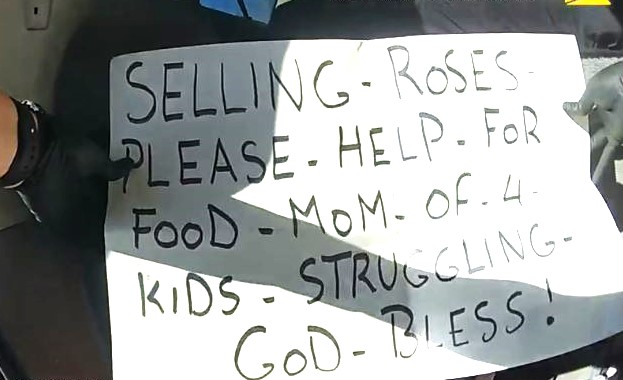 SELLING - ROSES -
PLEASE - HELP - FOR
FOOD - MOM - OF - 4 -
KIDS - STRUGGLING -
GOD - BLESS!